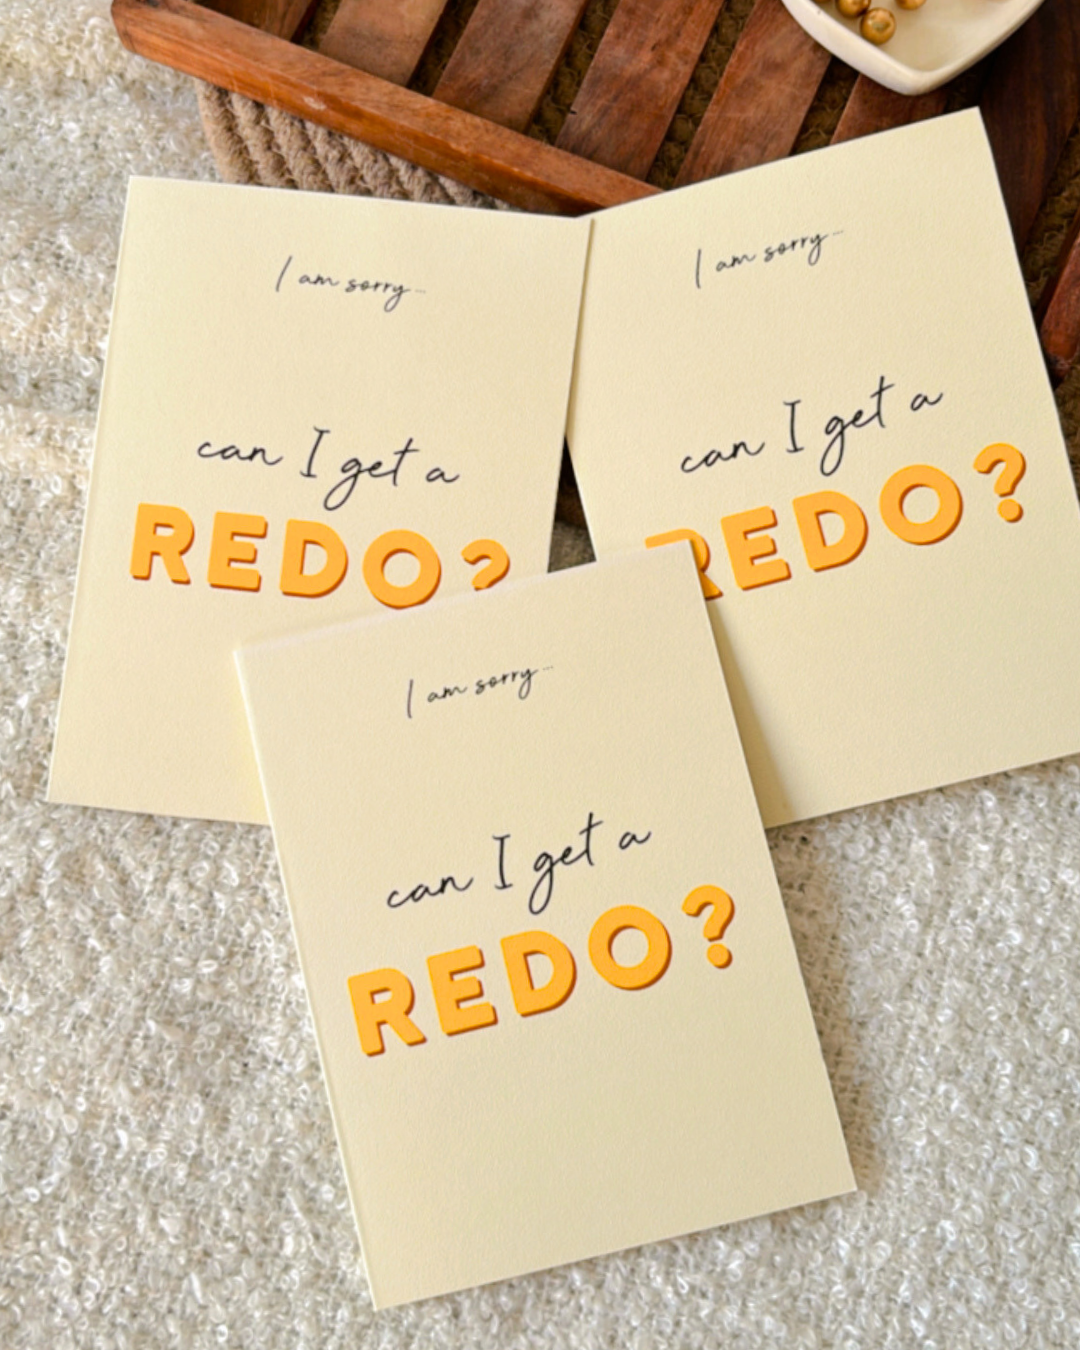 I am sorry...
can I get a
REDO?
I am sorry...
can I get a
REDO?
I am sorry...
can I get a
REDO?